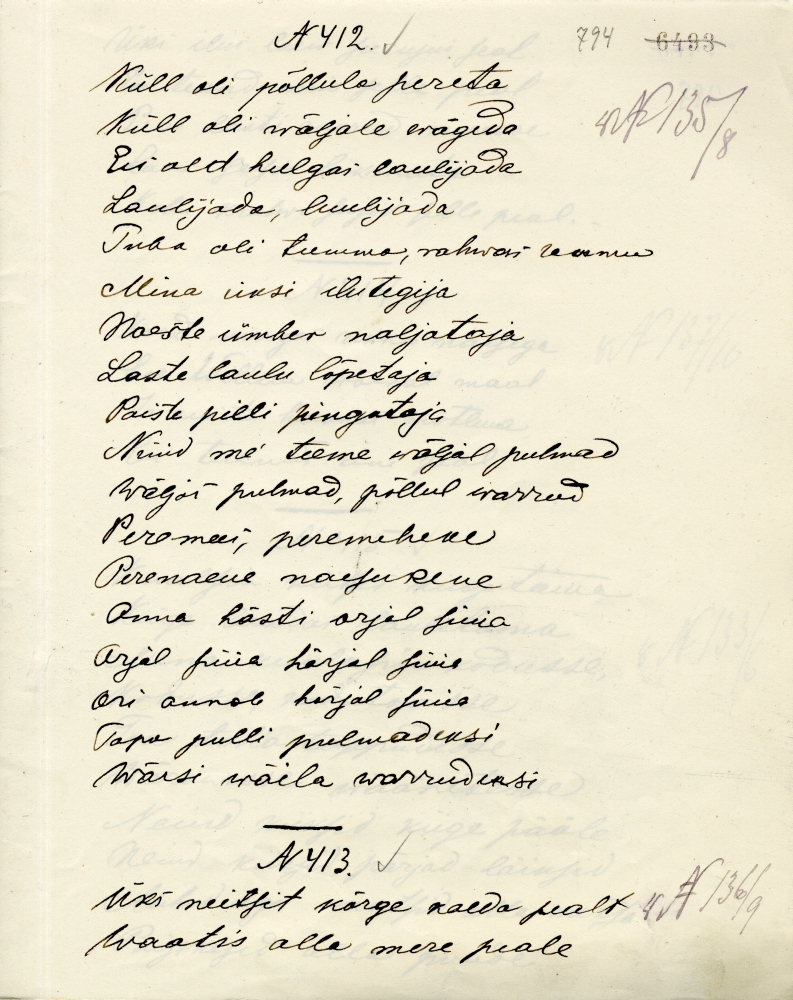 N 412. ✓ 794 6493
Küll oli põllula pereta
Küll oli wäljale wägeda N 135/8
Ei old hulgas laulijada
Laulijada, luulijada
Tuba oli tumma, rahwas
Mina üksi ilutegija
Naeste ümber naljataja
Laste laulu lõpetaja
Poiste pilli pingutaja
Nüüd me teeme wäljal pulmad
Wäljas pulmad, põllul warrud
Peremees, peremehene
Perenaene naesukene
Anna hästi orjal süüa
Orjal süüa härjal süüa
Ori annab härjal süüa
Tapa pulli pulmadeksi
Wärsi wäila warrudeksi
N 413. ✓
Üks neitsit kõrge kalda pealt N 136/9
Waatis alla mere peale